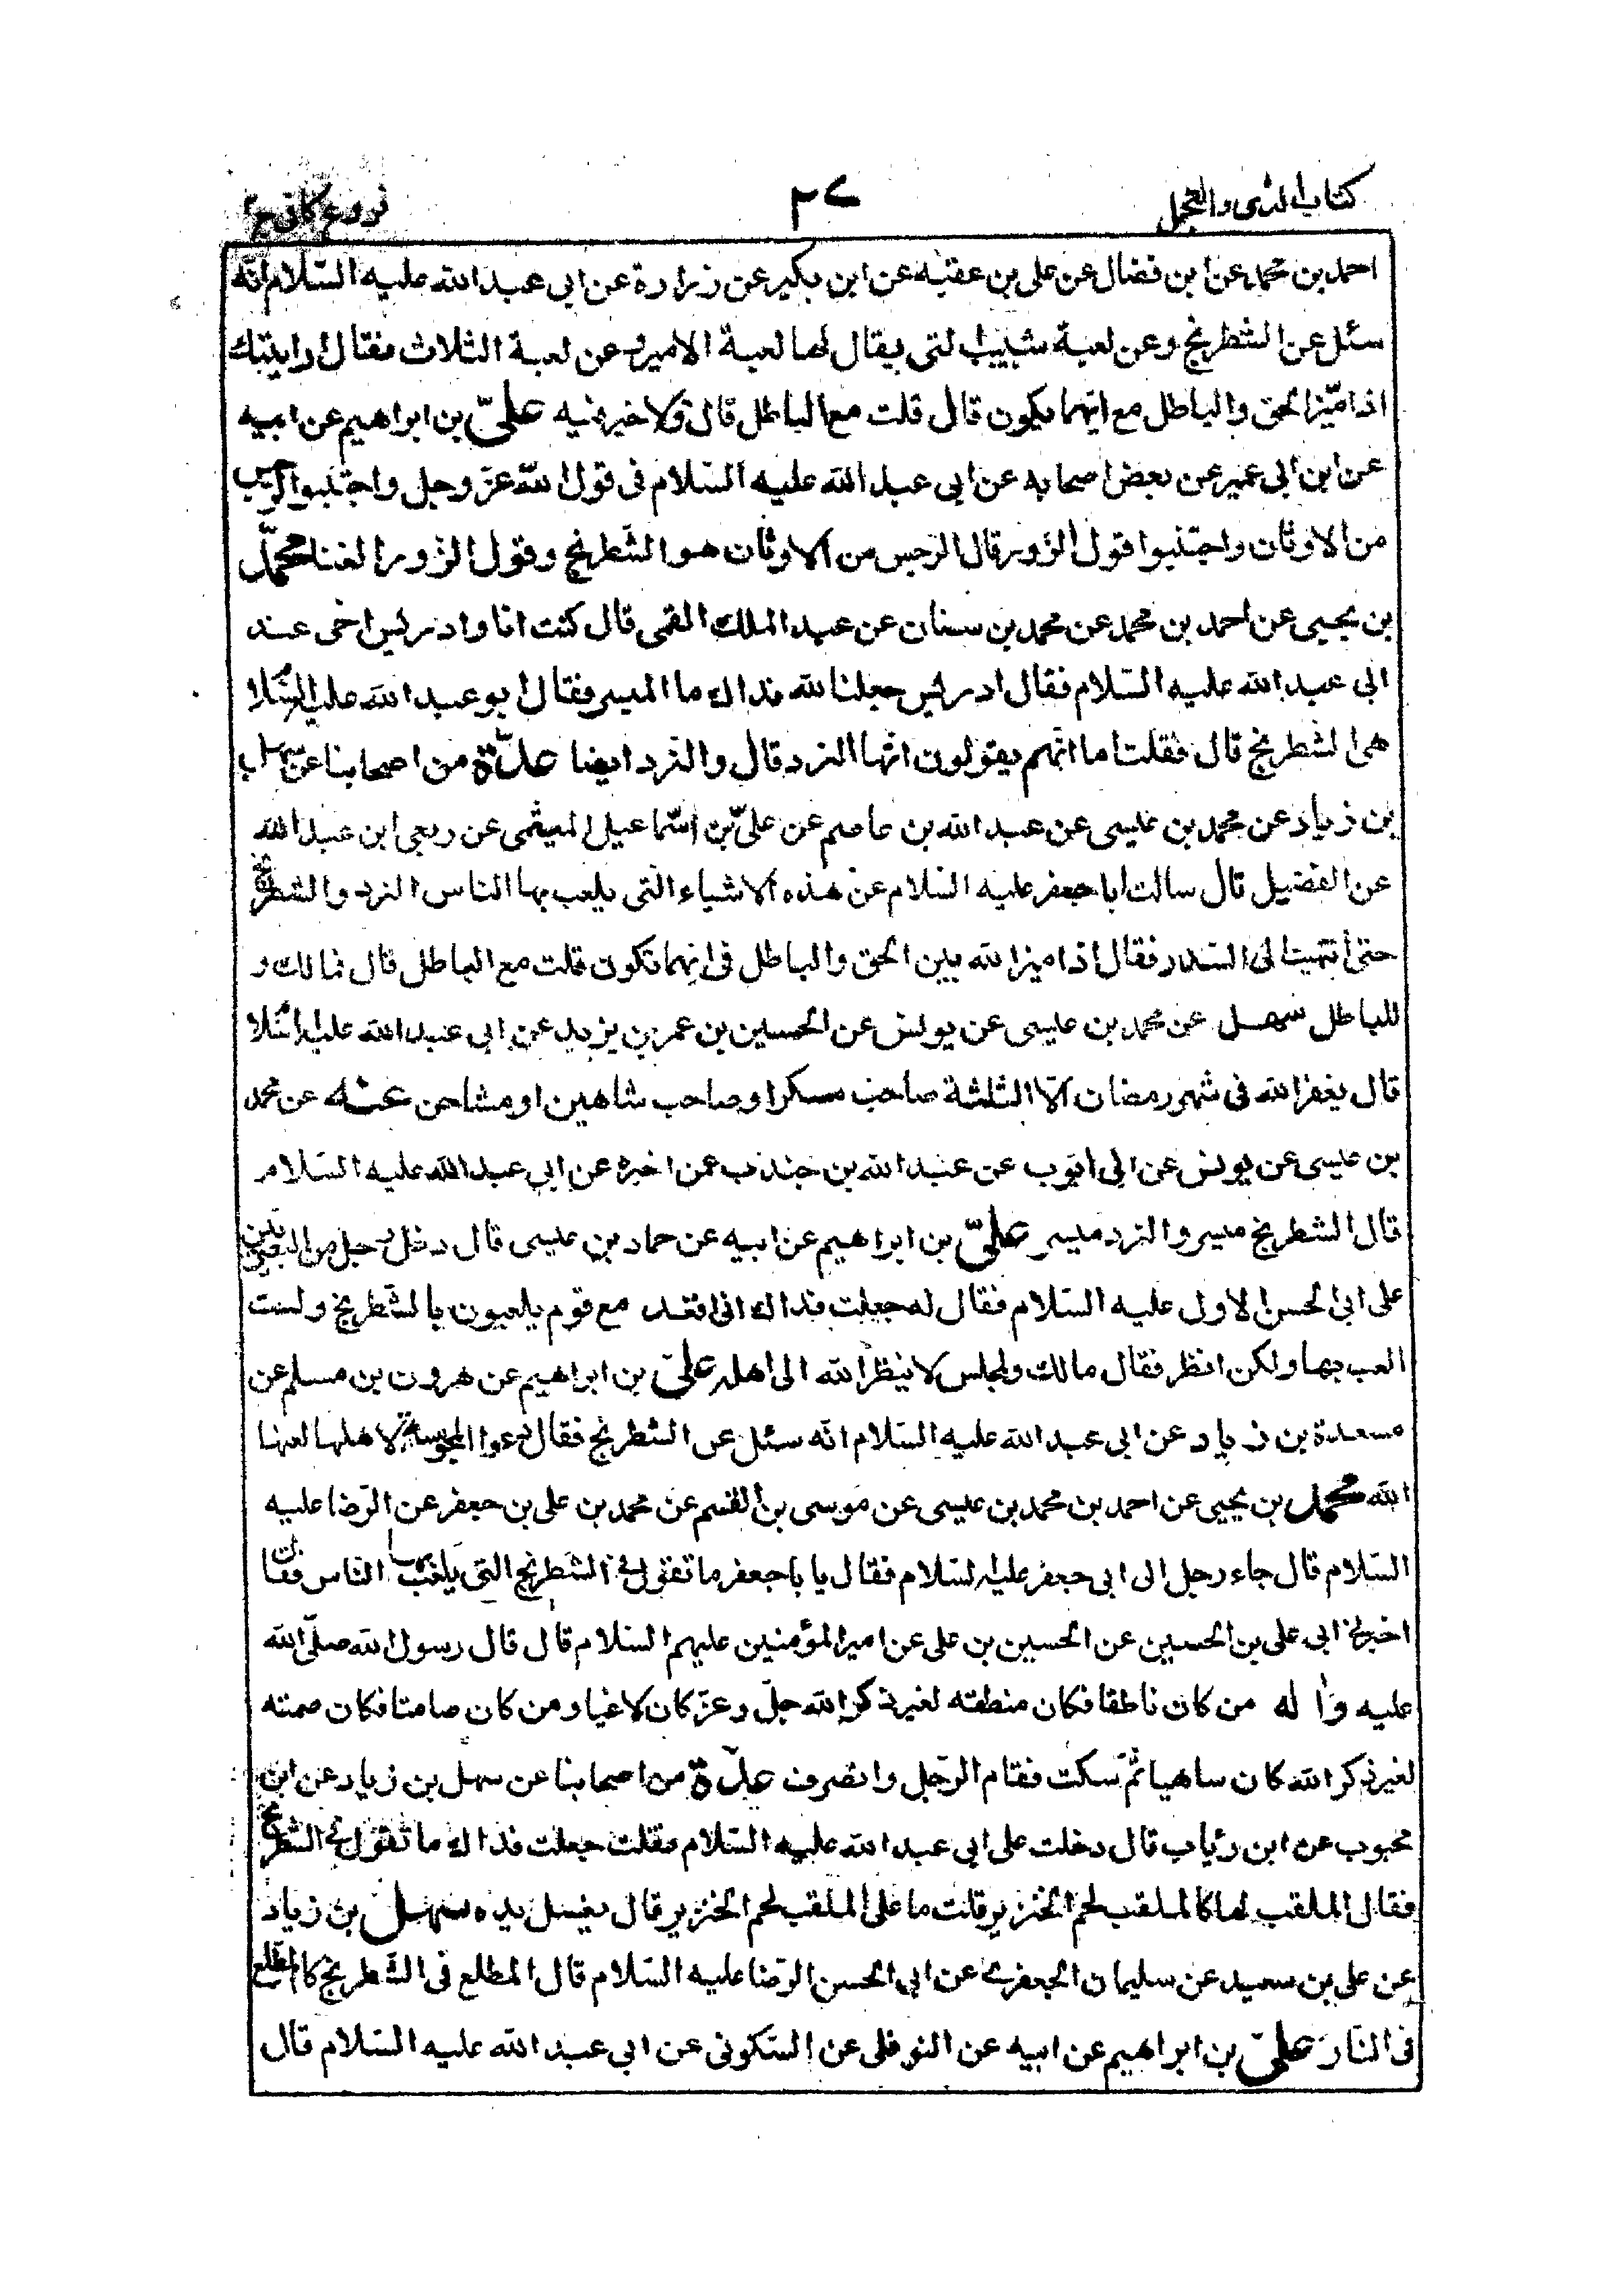 كتاب الزي والتجمل
٢٧
فروع كافي ج
احمد بن محمد عن ابن فضال عن على بن عقبه عن ابن بكير عن زرارة عن ابى عبد الله عليه السّلام انّه
سئل عن الشطرنج وعن لعبة شبيب التى يقال لها لعبة الامير وعن لعبة الثلاث فقال ارايتك
اذا ميّز الحق والباطل مع ايّهما يكون قال قلت مع الباطل قال فلا خير فيه علىّ بن ابراهيم عن ابيه
عن ابن ابى عمير عن بعض اصحابه عن ابى عبد الله عليه السّلام فى قول الله عزّ وجل واجتنبوا الرجس
من الاوثان واجتنبوا قول الزّور قال الرّجس من الاوثان هو الشّطرنج وقول الزّور الغنا محمّد
بن يحيى عن احمد بن محمد عن محمد بن سنان عن عبد الملك القمى قال كنت انا وادريس اخى عند
ابى عبد الله عليه السّلام فقال ادريس جعلنا الله فداك ما الميسر فقال ابو عبد الله عليه السّلام
هى الشطرنج قال فقلت اما انّهم يقولون انّها النرد قال والنّرد ايضا عدّة من اصحابنا عن سهل
بن زياد عن محمد بن عيسى عن عبد الله بن عاصم عن علىّ بن اسّماعيل الميثمى عن ربعى ابن عبد الله
عن الفضيل قال سالت ابا جعفر عليه السّلام عن هذه الاشياء التى يلعب بها الناس النرد والشطرنج
حتى انتهيت الى السّدر فقال اذا ميز الله بين الحق والباطل فى ايّهما تكون قلت مع الباطل قال فما لك و
للباطل سهل عن محمد بن عيسى عن يونس عن الحسين بن عمر بن يزيد عن ابى عبد الله عليه السّلام
قال يغفر الله فى شهر رمضان الّا الثلثة صاحب مسكر او صاحب شاهين او مشاحن عنه عن محمد
بن عيسى عن يونس عن ابى ايّوب عن عبد الله بن جندب عمن اخبره عن ابى عبد الله عليه السّلام
قال الشطرنج ميسر والنرد ميسر علىّ بن ابراهيم عن ابيه عن حماد بن عيسى قال دخل رجل من البصريّين
على ابى الحسن الاول عليه السّلام فقال له جعلت فداك انى اقعد مع قوم يلعبون بالشّطرنج ولست
العب بها ولكن انظر فقال مالك ولمجلس لا ينظر الله الى اهله علىّ بن ابراهيم عن هرون بن مسلم عن
مسعدة بن زياد عن ابى عبد الله عليه السّلام انّه سئل عن الشطرنج فقال دعوا المجوسيّة لاهلها لعنها
الله محمّد بن يحيى عن احمد بن محمد بن عيسى عن موسى بن القسم عن محمد بن على بن جعفر عن الرّضا عليه
السّلام قال جاء رجل الى ابى جعفر عليه السّلام فقال يا با جعفر ما تقول فى الشّطرنج التى يلعب بها الناس فقال
اخبرنى ابى على بن الحسين عن الحسين بن على عن امير المؤمنين عليهم السّلام قال قال رسول الله صلّى الله
عليه واٰله من كان ناطقا فكان منطقه لغير ذكر الله جلّ وعزّ كان لاغيا ومن كان صامتا فكان صمته
لغير ذكر الله كان ساهيا ثمّ سكت فقام الرّجل وانصرف عدّة من اصحابنا عن سهل بن زياد عن ابن
محبوب عن ابن رئاب قال دخلت على ابى عبد الله عليه السّلام فقلت جعلت فداك ما تقول فى الشطرنج
فقال المقلب لها كالمقلب لحم الخنزير قلت ما على المقلب لحم الخنزير قال يغسل يده سهل بن زياد
عن على بن سعيد عن سليمان الجعفرى عن ابى الحسن الرّضا عليه السّلام قال المطلع فى الشّطرنج كالمطّلع
فى النّار علىّ بن ابراهيم عن ابيه عن النوفلى عن السّكونى عن ابى عبد الله عليه السّلام قال